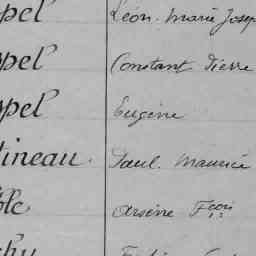 pel Léon. Marie Josep
ppel Constant Pierre
ppel Eugène
tineau. Paul. Maurice
ble Arsène Fçois